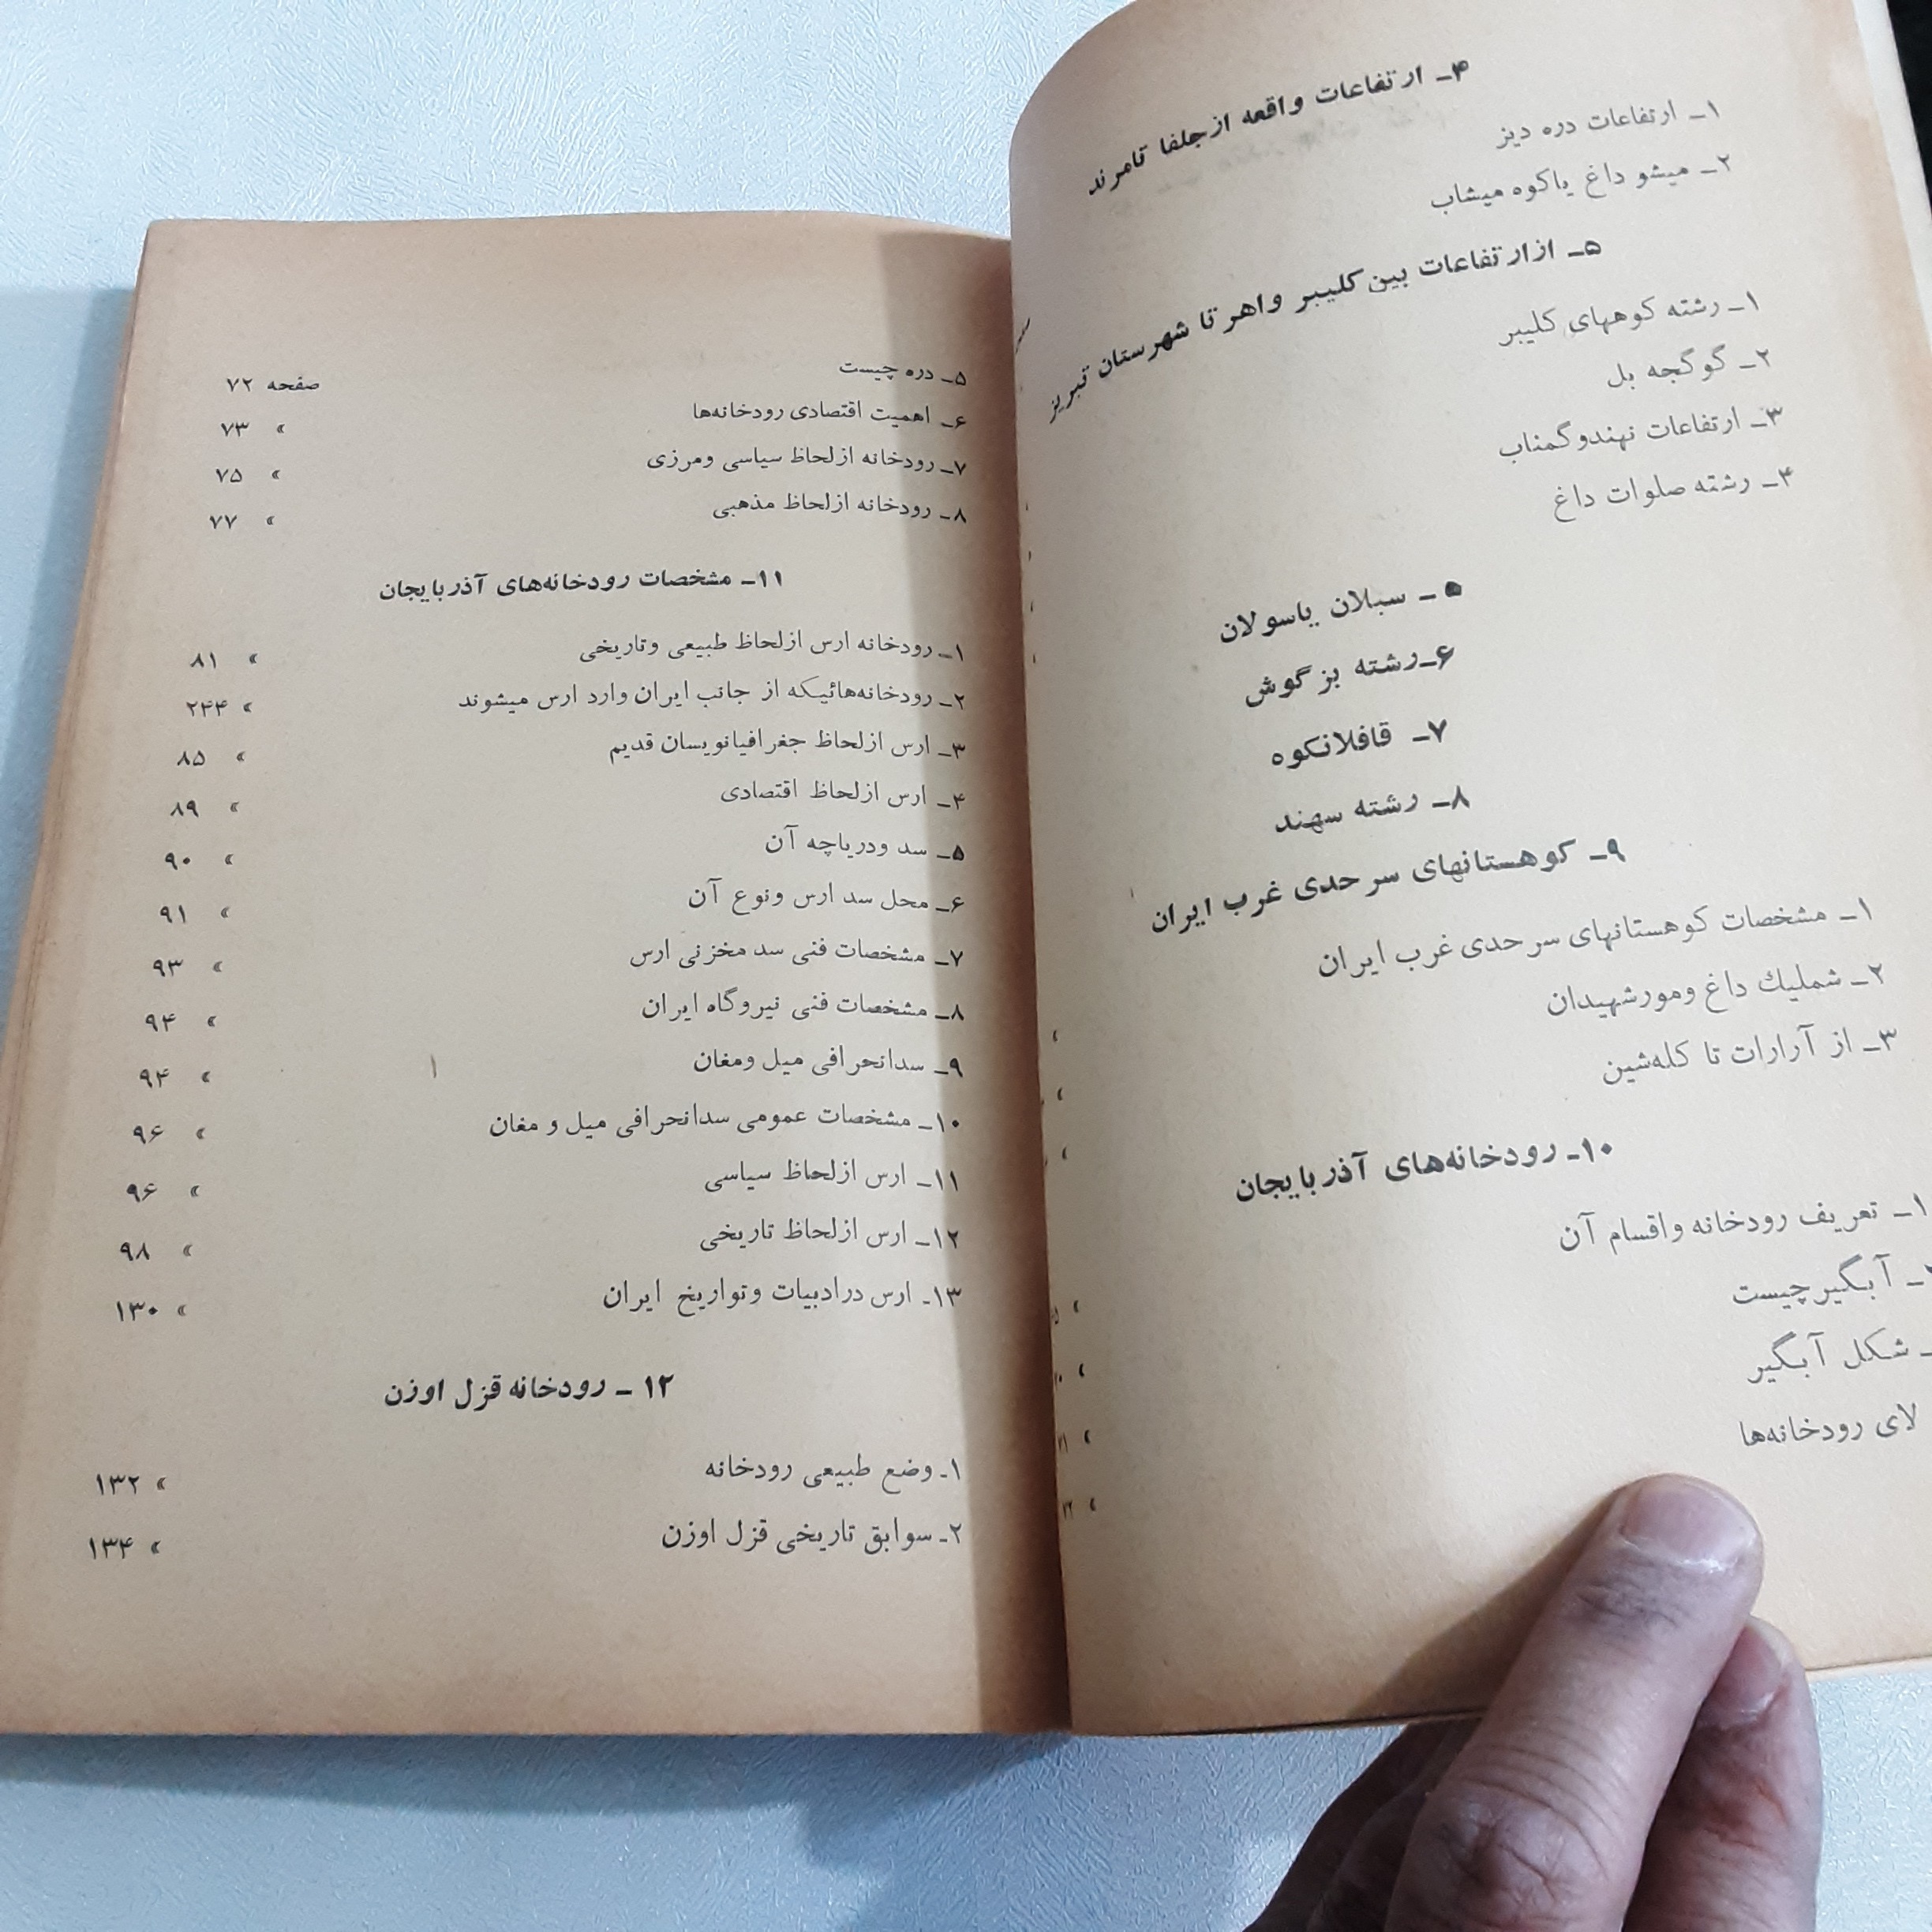 ۴ـ ارتفاعات واقعه ازجلفا تامرند
۱ـ ارتفاعات دره دیز
۲ـ میشو داغ یاکوه میشاب
۵ـ ازارتفاعات بین کلیبر واهر تا شهرستان تبریز
۱ـ رشته کوههای کلیبر
۲ـ گوگجه بل
۳ـ ارتفاعات نهندوگمناب
۴ـ رشته صلوات داغ
۵ـ سبلان یاسولان
۶ـ رشته بزگوش
۷ـ قافلانکوه
۸ـ رشته سهند
۹ـ کوهستانهای سرحدی غرب ایران
۱ـ مشخصات کوهستانهای سرحدی غرب ایران
۲ـ شملیك داغ ومورشهیدان
۳ـ از آرارات تا کله‌شین
۱۰ـ رودخانه‌های آذربایجان
۱ـ تعریف رودخانه واقسام آن
ـ آبگیرچیست
ـ شکل آبگیر
لای رودخانه‌ها
۵ـ دره چیست صفحه ۷۲
۶ـ اهمیت اقتصادی رودخانه‌ها » ۷۳
۷ـ رودخانه ازلحاظ سیاسی ومرزی » ۷۵
۸ـ رودخانه ازلحاظ مذهبی » ۷۷
۱۱ـ مشخصات رودخانه‌های آذربایجان
۱ـ رودخانه ارس ازلحاظ طبیعی وتاریخی » ۸۱
۲ـ رودخانه‌هائیکه از جانب ایران وارد ارس میشوند » ۲۴۴
۳ـ ارس ازلحاظ جغرافیانویسان قدیم » ۸۵
۴ـ ارس ازلحاظ اقتصادی » ۸۹
۵ـ سد ودریاچه آن » ۹۰
۶ـ محل سد ارس ونوع آن » ۹۱
۷ـ مشخصات فنی سد مخزنی ارس » ۹۳
۸ـ مشخصات فنی نیروگاه ایران » ۹۴
۹ـ سدانحرافی میل ومغان » ۹۴
۱۰ـ مشخصات عمومی سدانحرافی میل و مغان » ۹۶
۱۱ـ ارس ازلحاظ سیاسی » ۹۶
۱۲ـ ارس ازلحاظ تاریخی » ۹۸
۱۳ـ ارس درادبیات وتواریخ ایران » ۱۳۰
۱۲ ـ رودخانه قزل اوزن
۱ـ وضع طبیعی رودخانه » ۱۳۲
۲ـ سوابق تاریخی قزل اوزن » ۱۳۴